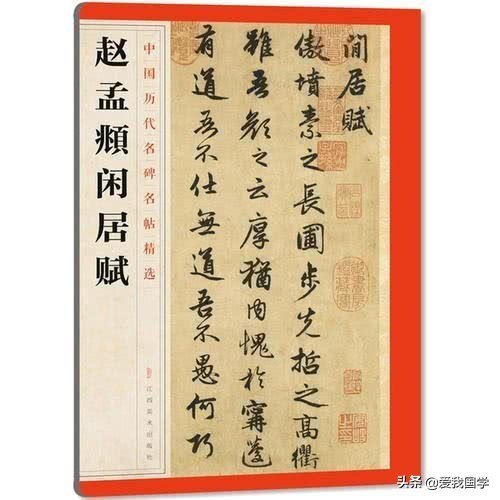 赵孟頫闲居赋
中国历代名碑名帖精选
江西美术出版社
閒居賦
傲墳素之長圃步先哲之高衢
雖吾顔之云厚猶内愧於甯蘧
有道吾不仕無道吾不愚何巧
头条 @爱我国学